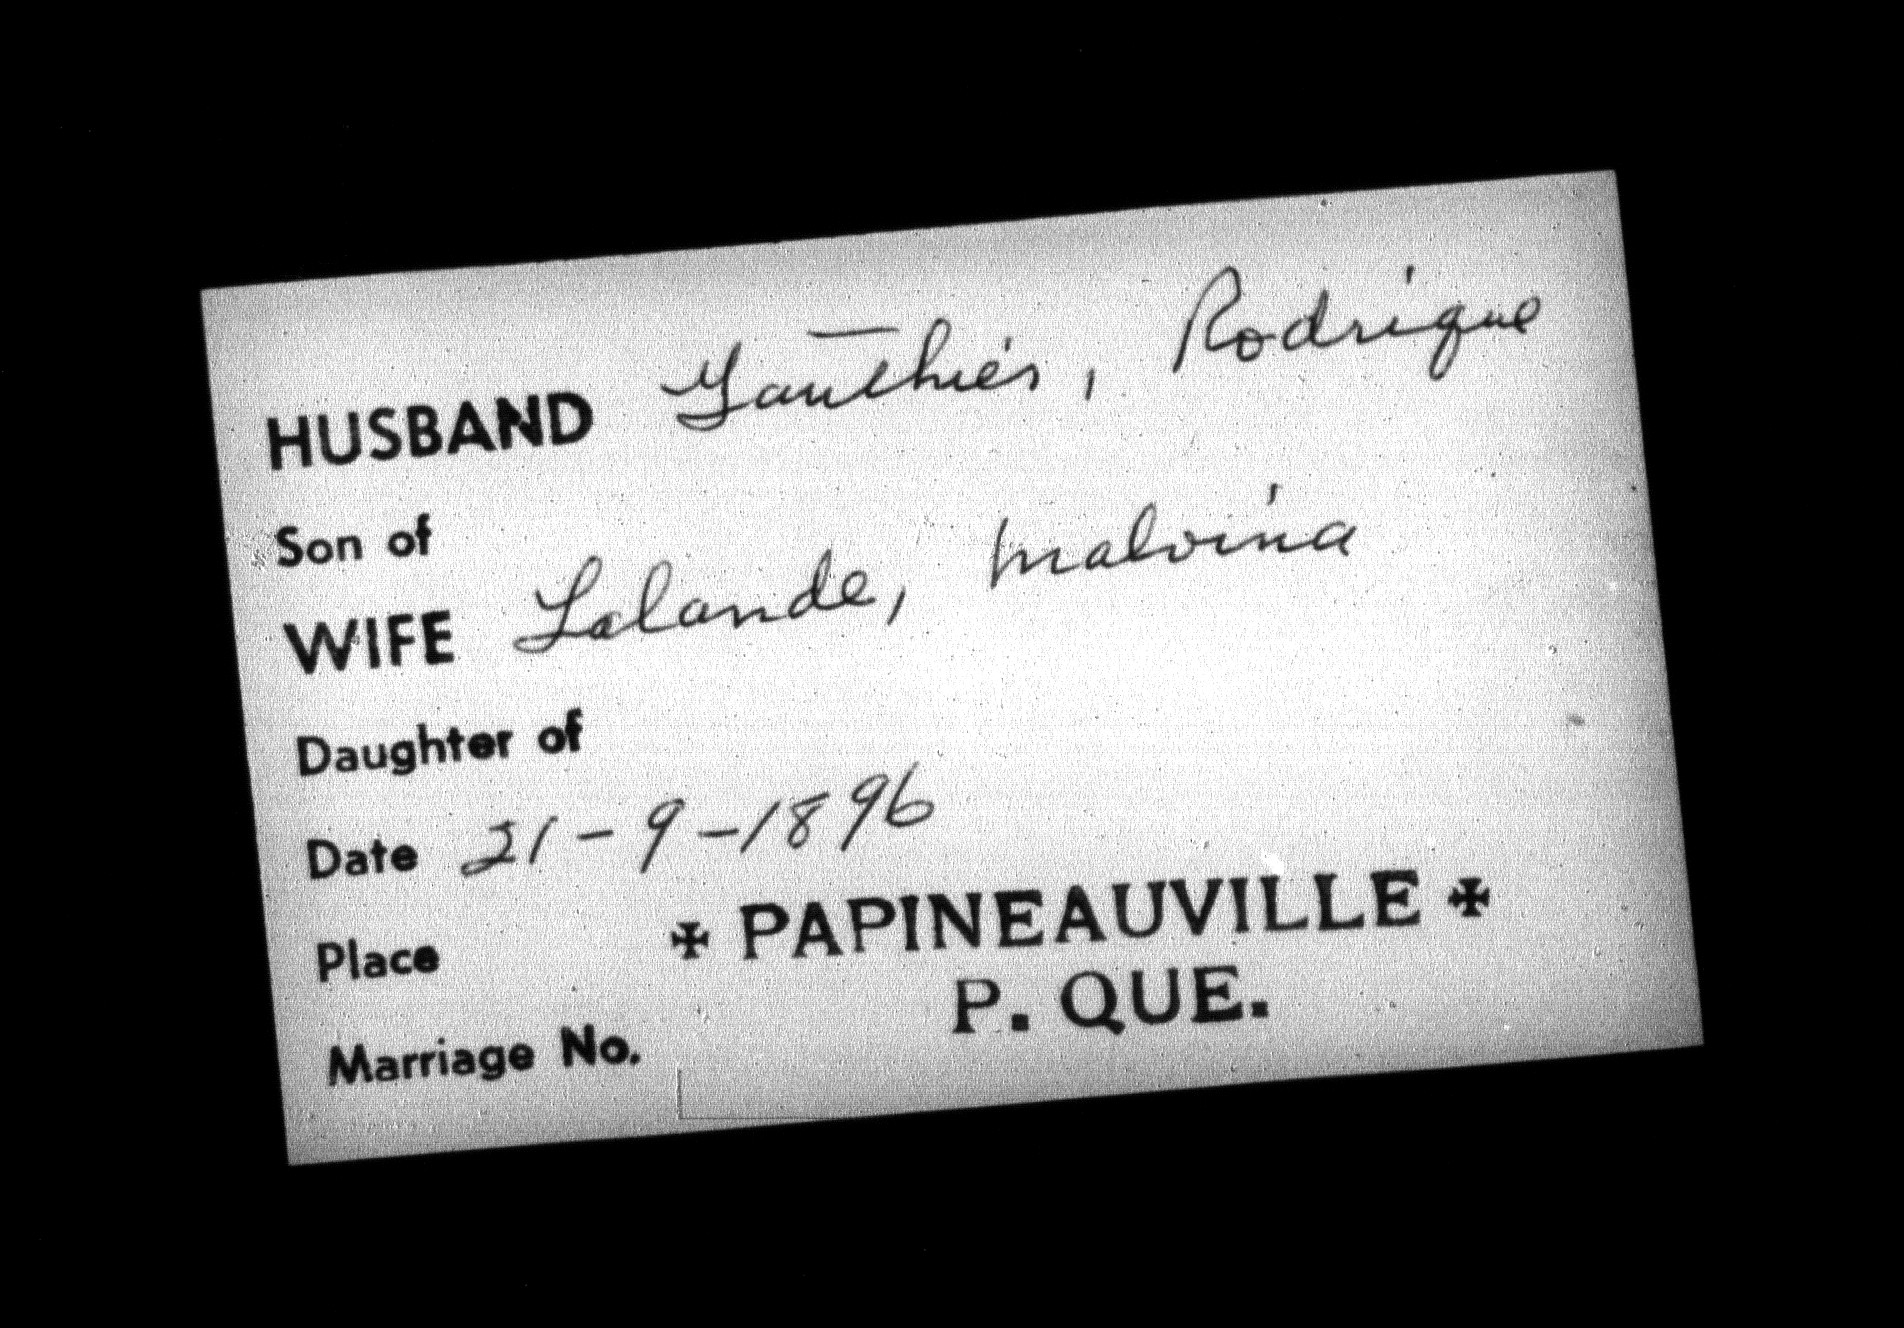 HUSBAND Gauthier, Rodrigue
Son of
WIFE Lalande, Malvina
Daughter of
Date 21-9-1896
Place ✠ PAPINEAUVILLE ✠
P. QUE.
Marriage No.